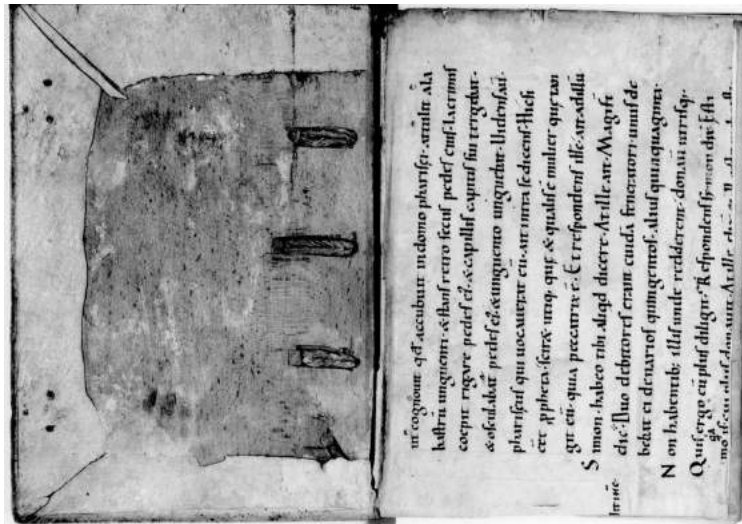 ut cognouit qd accubuit in domo pharisei. attulit ala
bastrū unguenti. & stans retro secus pedes eius. lacrimis
coepit rigare pedes ei. & capillis capitis sui tergebat.
& osculabat pedes ei. & unguento unguebat. Uidens aū
phariseus qui uocauerat eū. ait intra se dicens. Hic si
eēt ppheta. sciret utiq. quę & qualis ē mulier quę tan
git eū. quia peccatrix ē. Et respondens ihs. ait ad illū
Simon. habeo tibi aliqd dicere. At ille ait. Magist
dic. Duo debitores erant cuidā feneratori. unus de
bebat ei denarios quingentos. alius quinquaginta.
Non habentib; illis unde redderent. donauit utrisq.
Quis ergo eū plus diligit. Respondens simon dix. Esti
mo